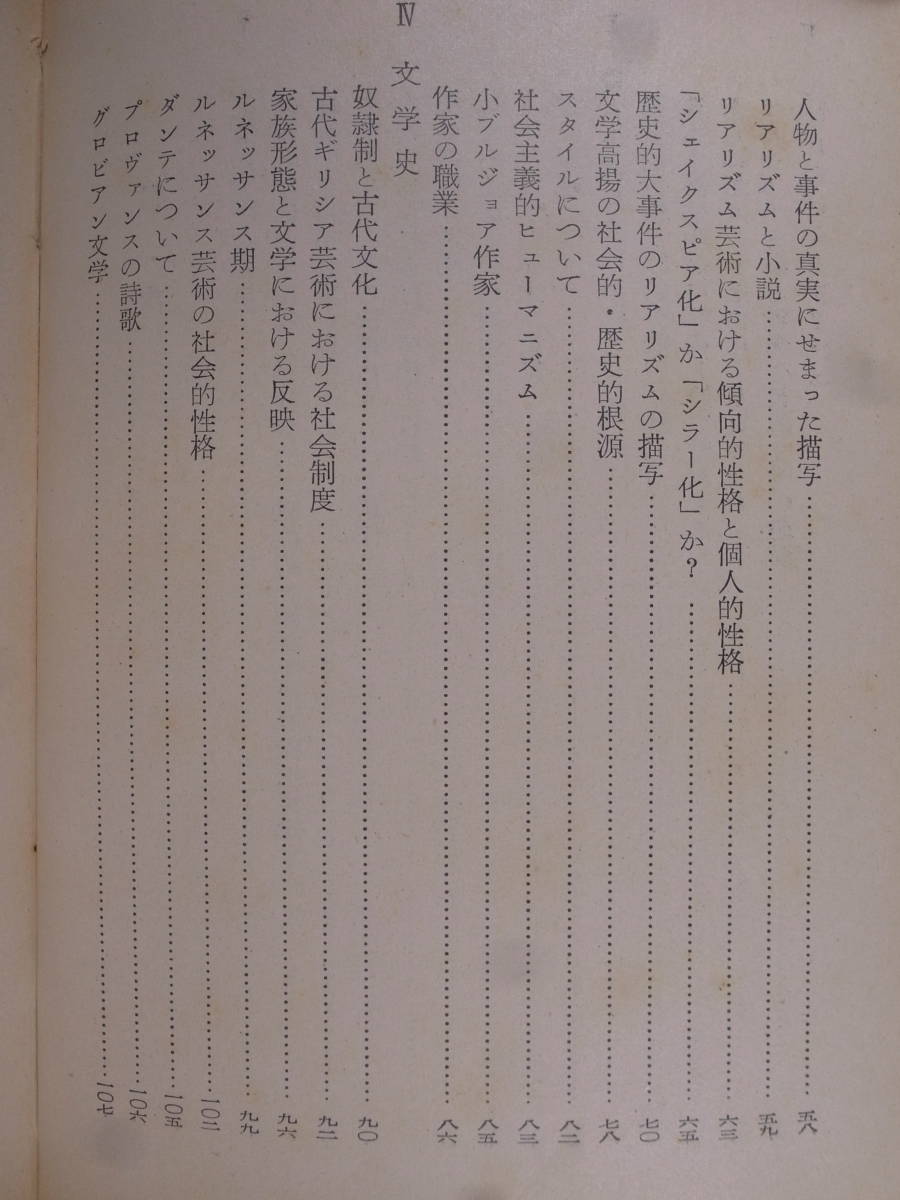 人物と事件の真実にせまった描写……五八
リアリズムと小説……五九
リアリズム芸術における傾向的性格と個人的性格……六三
「シェイクスピア化」か「シラー化」か？……六五
歴史的大事件のリアリズムの描写……七〇
文学高揚の社会的・歴史的根源……七八
スタイルについて……八二
社会主義的ヒューマニズム……八三
小ブルジョア作家……八五
作家の職業……八六
Ⅳ 文学史
奴隷制と古代文化……九〇
古代ギリシア芸術における社会制度……九二
家族形態と文学における反映……九六
ルネッサンス期……九九
ルネッサンス芸術の社会的性格……一〇二
ダンテについて……一〇五
プロヴァンスの詩歌……一〇六
グロビアン文学……一〇七